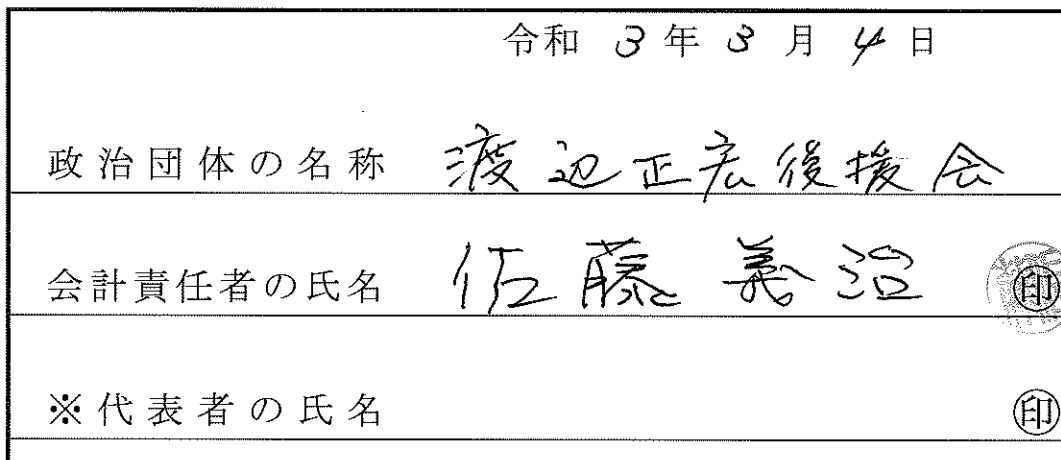 令和 3 年 3 月 4 日
政治団体の名称 渡辺正宏後援会
会計責任者の氏名 佐藤義治 ㊞
※代表者の氏名 ㊞